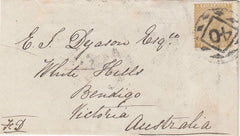 E. J. Dyason Esqre
White Hills
Bendigo
Victoria
Australia
40